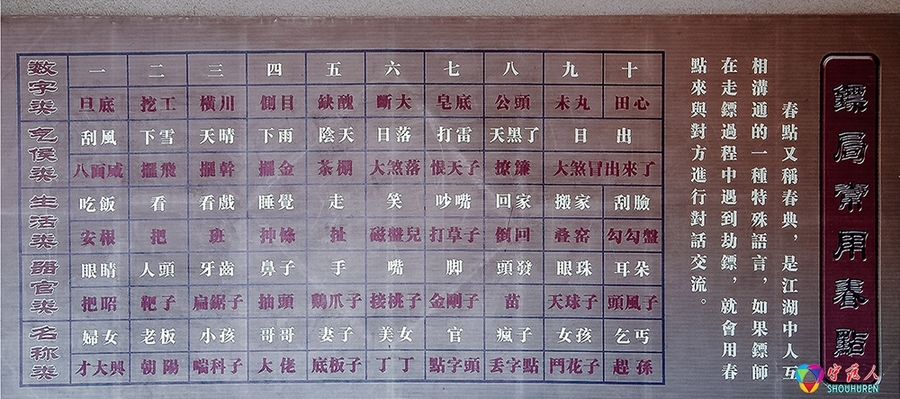 鏢局常用春點
春點又稱春典，是江湖中人互
相溝通的一種特殊語言，如果鏢師
在走鏢過程中遇到劫鏢，就會用春
點來與對方進行對話交流。
数字类 一 二 三 四 五 六 七 八 九 十
旦底 挖工 橫川 側目 缺醜 斷大 皂底 公頭 未丸 田心
气侯类 刮風 下雪 天晴 下雨 陰天 日落 打雷 天黑了 日出
八面威 擺飛 擺幹 擺金 茶棚 大煞落 恨天子 撩簾 大煞冒出來了
生活类 吃飯 看 看戲 睡覺 走 笑 吵嘴 回家 搬家 刮臉
安根 把 班 抻條 扯 磁盤兒 打草子 倒回 叠窑 勾勾盤
器官类 眼睛 人頭 牙齒 鼻子 手 嘴 脚 頭發 眼珠 耳朵
把昭 靶子 扁鋸子 抽頭 鷄爪子 接桃子 金剛子 苗 天球子 頭風子
名称类 婦女 老板 小孩 哥哥 妻子 美女 官 瘋子 女孩 乞丐
才大興 朝陽 喘科子 大佬 底板子 丁丁 點字頭 丢字點 門花子 趕孫
守藝人
SHOUHUREN